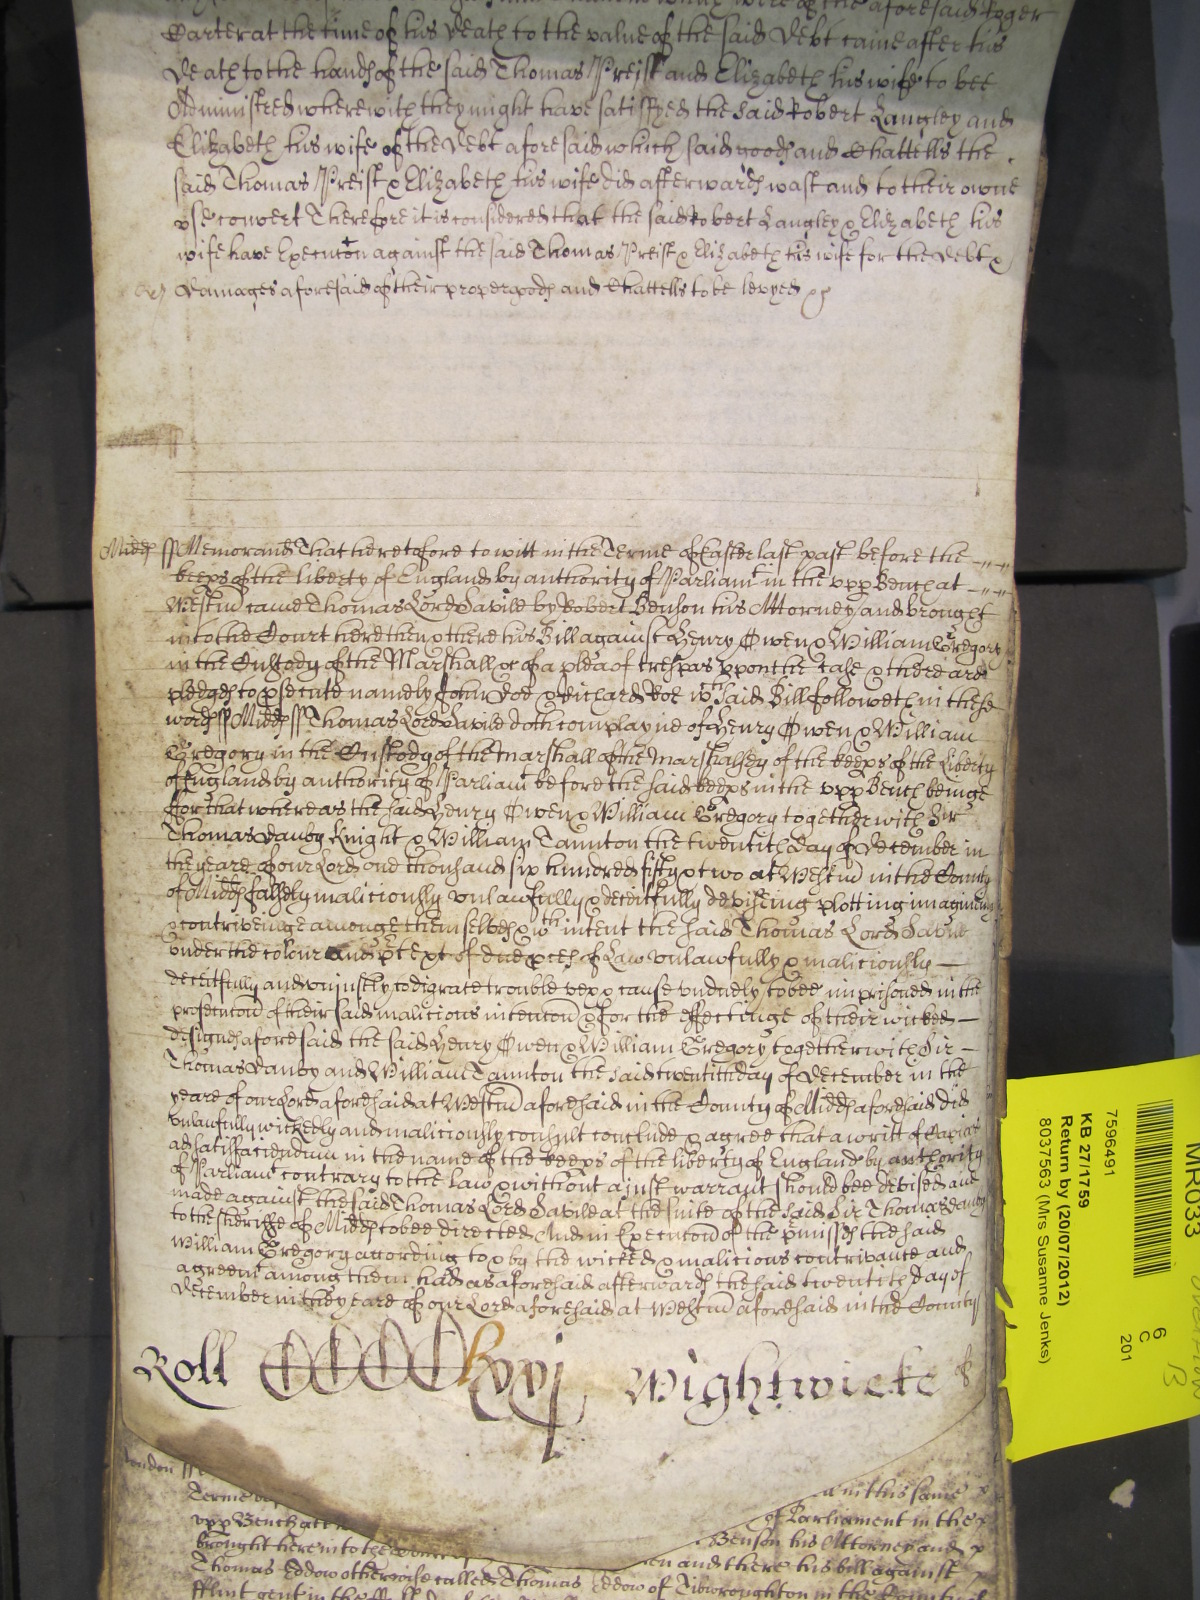 aforesaid Roger
Carter at the time of his death to the value of the said debt came after his
death to the hands of the said Thomas Preist and Elizabeth his wife to bee
Administred wherewith they might have satisfyed the said Robert Langley and
Elizabeth his wife of the debt aforesaid which said goods and Chattells the
said Thomas Preist & Elizabeth his wife did afterwards wast and to their owne
vse convert Therefore it is considered that the said Robert Langley & Elizabeth his
wife have Execucon against the said Thomas Preist & Elizabeth his wife for the debt &
damages aforesaid of their proper goods and Chattells to be levyed &c
Midds ss Memorand That heretofore to witt in the Terme of Easter last past before the
keeps of the liberty of England by authority of Parliamt in the vpp Bench at
Westm came Thomas Lord Savile by Robert Benson his Attorney and brought
into the Court here then & there his Bill against Henry Owen & William Gregory
in the Custody of the Marshall &c of a plea of trespas vpon the case & there are
pledges to psecute namely John Doe & Richard Roe wch said Bill followeth in these
words ss Midds ss Thomas Lord Savile doth complayne of Henry Owen & William
Gregory in the Custody of the Marshall of the Marshalsey of the keeps of the Liberty
of England by authority of Parliamt before the said keeps in the vpp Bench beinge
For that whereas the said Henry Owen & William Gregory together with Sir
Thomas Danby Knight & William Taunton the twentith day of December in
the yeare of our Lord one thousand six hundred fifty & two at Westm in the County
of Midds falsely maliciously vnlawfully & deceitfully deviseing plotting imagining
& contriveinge amonge themselves & wth intent the said Thomas Lord Savile
vnder the colour and ptext of due pces of Law vnlawfully & maliciously
deceitfully and vniustly to digrate trouble vex & cause vnduely to bee imprisoned in the
prosecucon of their said malicious intencon & for the effectinge of their wicked
designes aforesaid the said Henry Owen & William Gregory together with Sir
Thomas Danby and William Taunton the said twentith day of December in the
yeare of our Lord aforesaid at Westm aforesaid in the County of Midds aforesaid did
vnlawfully wickedly and maliciously consult conclude & agree that a writt of Capias
ad satisfaciendum in the name of the keeps of the liberty of England by authority
of Parliamt contrary to the law & without a iust warrant should bee devised and
made against the said Thomas Lord Savile at the suite of the said Sir Thomas Danby
to the Sheriffe of Midds to bee directed And in Execucon of the pmisses the said
William Gregory according to & by the wicked & malicious contrivance and
agreemt among them had as aforesaid afterwards the said twentith day of
December in the yeare of our Lord aforesaid at Westm aforesaid in the County
Roll CCCCxxvj Wightwicke
London ss
Terme
vpp Bench att
brought here into the
Thomas Eddow otherwise called Thomas Eddow of
fflint gent in the
in this same
of Parliament in the
Benson his Attorney and
and there his bill against
in the County
MR033
7596491
KB 27/1759
Return by (20/07/2012)
8037563 (Mrs Susanne Jenks)
6
C
201